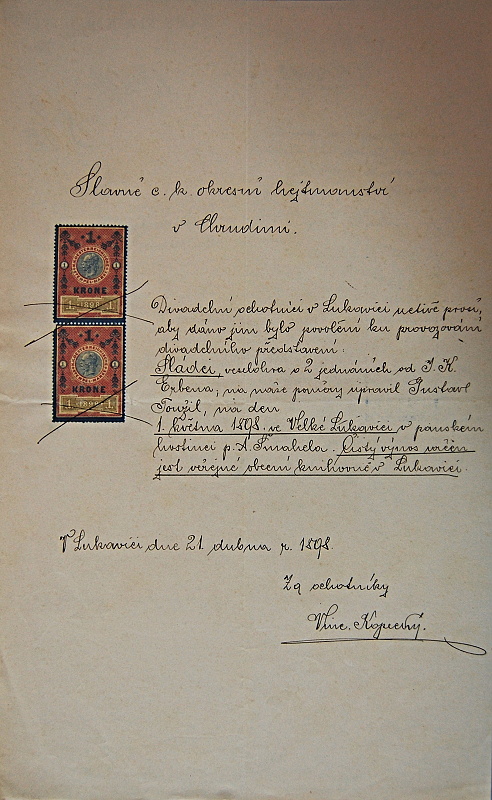 Slavné c. k. okresní hejtmanství
v Chrudimi.
1
KRONE
1 1898 1
1
KRONE
1 1898 1
Divadelní ochotníci v Lukavici uctivě prosí,
aby dáno jim bylo povolení ku provozování
divadelního představení:
Sládci, veselohra o 2 jednáních od J. K.
Erbena, na naše poměry upravil Gustav
Toužil, na den
1. května 1898. ve Velké Lukavici v panském
hostinci p. A. Smahela. Čistý výnos určen
jest veřejné obecní knihovně v Lukavici.
V Lukavici dne 21. dubna r. 1898.
Za ochotníky
Vinc. Kopecký.